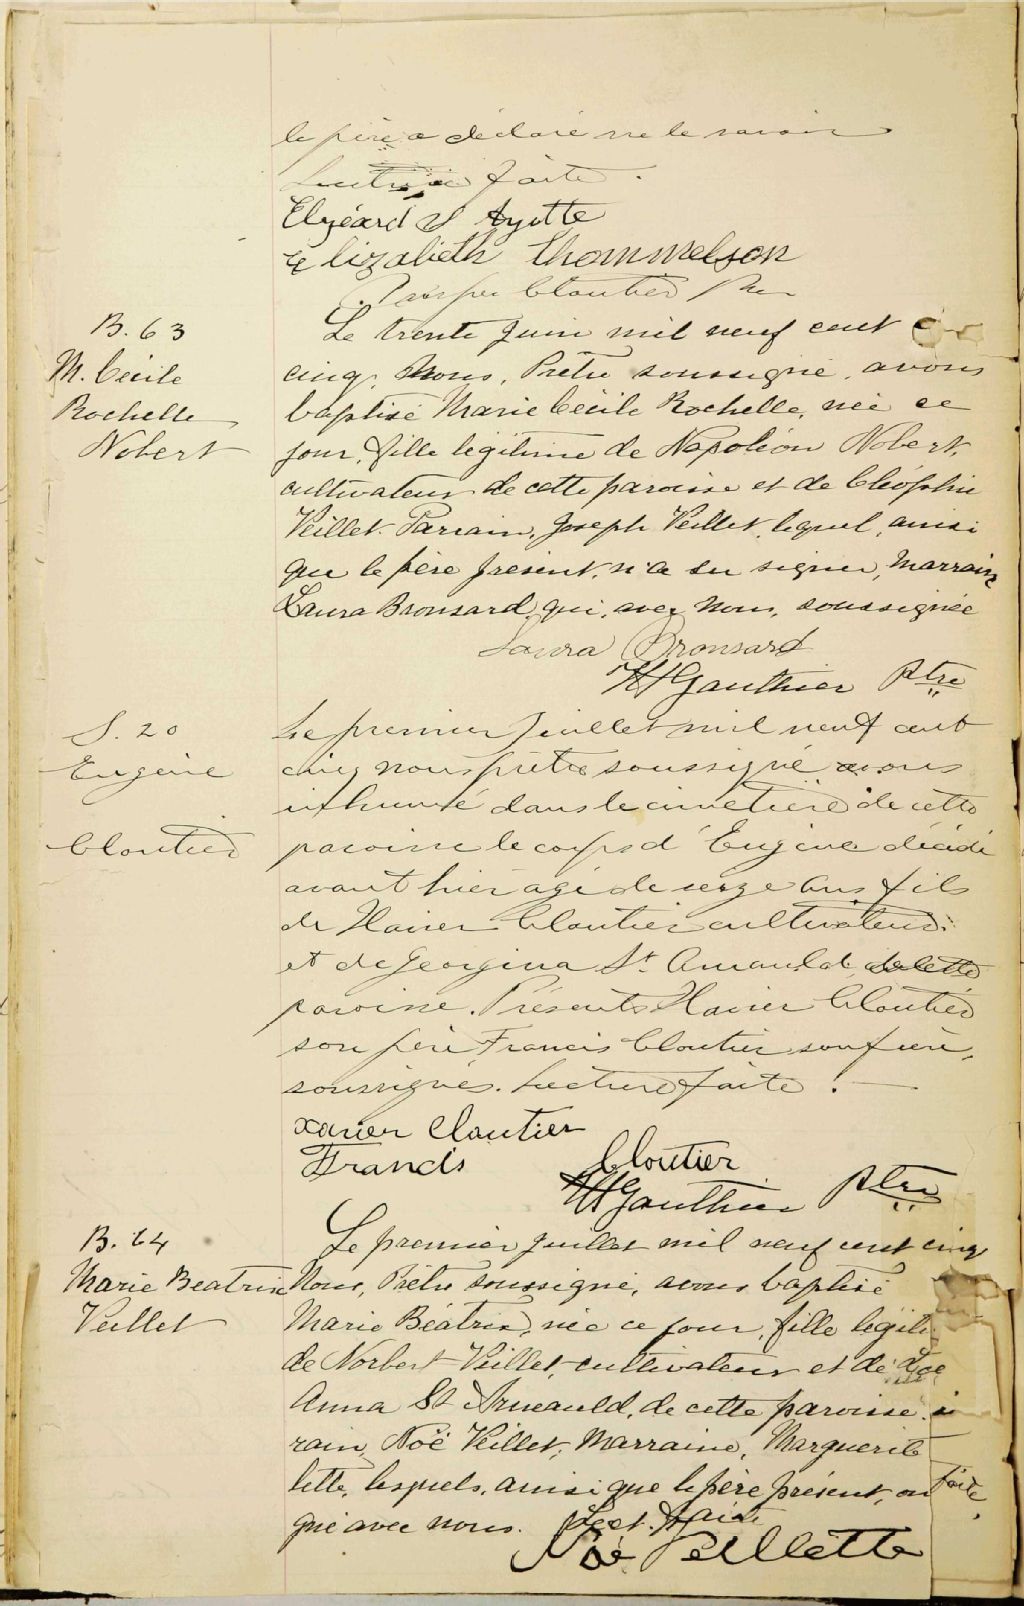 le père a déclaré ne le savoir
Lecture faite.
Elzéard St Ayotte
Elizabeth Thommelson
Prosper Cloutier Ptre
B. 63
M. Cécile
Rochelle
Nobert
Le trente Juin mil neuf cent
cinq, Nous, Prêtre soussigné, avons
baptisé Marie Cécile Rochelle, née ce
jour, fille légitime de Napoléon Nobert,
cultivateur de cette paroisse et de Cléophie
Veillet. Parrain, Joseph Veillet, lequel, ainsi
que le père présent, n'a su signer, Marraine
Laura Bronsard, qui, avec Nous, soussignée
Laura Bronsard
Gauthier Ptre
S. 20
Eugène
Cloutier
Le premier Juillet mil neuf cent
cinq nous prêtre soussigné avons
inhumé dans le cimetière de cette
paroisse le corps d'Eugène décédé
avant hier agé de seize ans fils
de Xavier Cloutier cultivateur
et de Georgina St. Arnauld de cette
paroisse. Présents Xavier Cloutier
son père, Francis Cloutier son frère,
soussignés. Lecture faite.
Xavier Cloutier
Francis Cloutier
Gauthier Ptre
B. 64
Marie Beatrix
Veillet
Le premier Juillet mil neuf cent cinq
Nous, Prêtre soussigné, avons baptisé
Marie Béatrix, née ce jour, fille légiti
de Norbert Veillet, cultivateur et de Zoé
Anna St Arneauld, de cette paroisse.
rain, Noë Veillet, Marraine, Marguerite
lette, lesquels, ainsi que le père présent, on
gné avec nous. Lect. faite
faite.
Noé Veillette